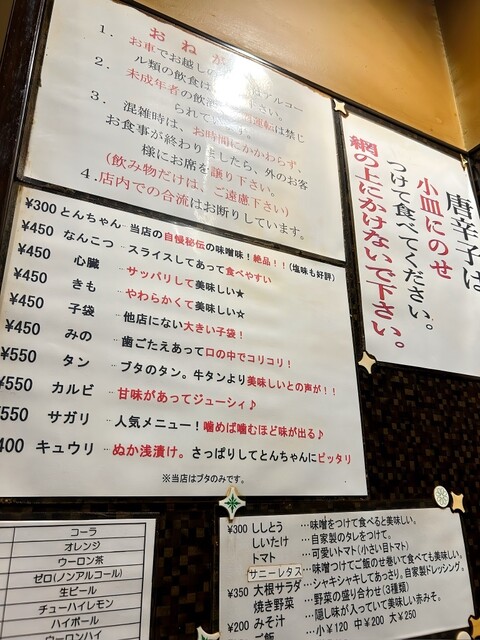 おねが
1. お車でお越しの アルコー
ル類の飲食は 下さい。
2. 未成年者の飲酒 運転は禁じ
られて す。
3. 混雑時は、お時間にかかわらず
お食事が終わりましたら、外のお客
様にお席を譲り下さい。
(飲み物だけは、ご遠慮下さい)
4.店内での合流はお断りしています。
唐辛子は
小皿にのせ
つけて食べてください。
網の上にかけないで下さい。
¥300 とんちゃん 当店の自慢秘伝の味噌味！絶品！！(塩味も好評)
¥450 なんこつ スライスしてあって食べやすい
¥450 心臓 サッパリして美味しい★
¥450 きも やわらかくて美味しい☆
¥450 子袋 他店にない大きい子袋！
¥450 みの 歯ごたえあって口の中でコリコリ！
¥550 タン ブタのタン。牛タンより美味しいとの声が！！
¥550 カルビ 甘味があってジューシィ♪
¥550 サガリ 人気メニュー！噛めば噛むほど味が出る♪
400 キュウリ ぬか浅漬け。さっぱりしてとんちゃんにピッタリ
※当店はブタのみです。
コーラ
オレンジ
ウーロン茶
ゼロ(ノンアルコール)
生ビール
チューハイレモン
ハイボール
ウーロンハイ
¥300 ししとう …味噌をつけて食べると美味しい。
しいたけ …自家製のタレをつけて。
トマト …可愛いトマト(小さい目トマト)
サニーレタス …味噌つけてご飯のせ巻いて食べても美味しい。
¥350 大根サラダ …シャキシャキしてあっさり。自家製ドレッシング。
焼き野菜 …野菜の盛り合わせ(3種類)
¥200 みそ汁 …隠し味が入っていて美味しい赤みそ。
ご飯 …小¥120 中¥200 大¥250